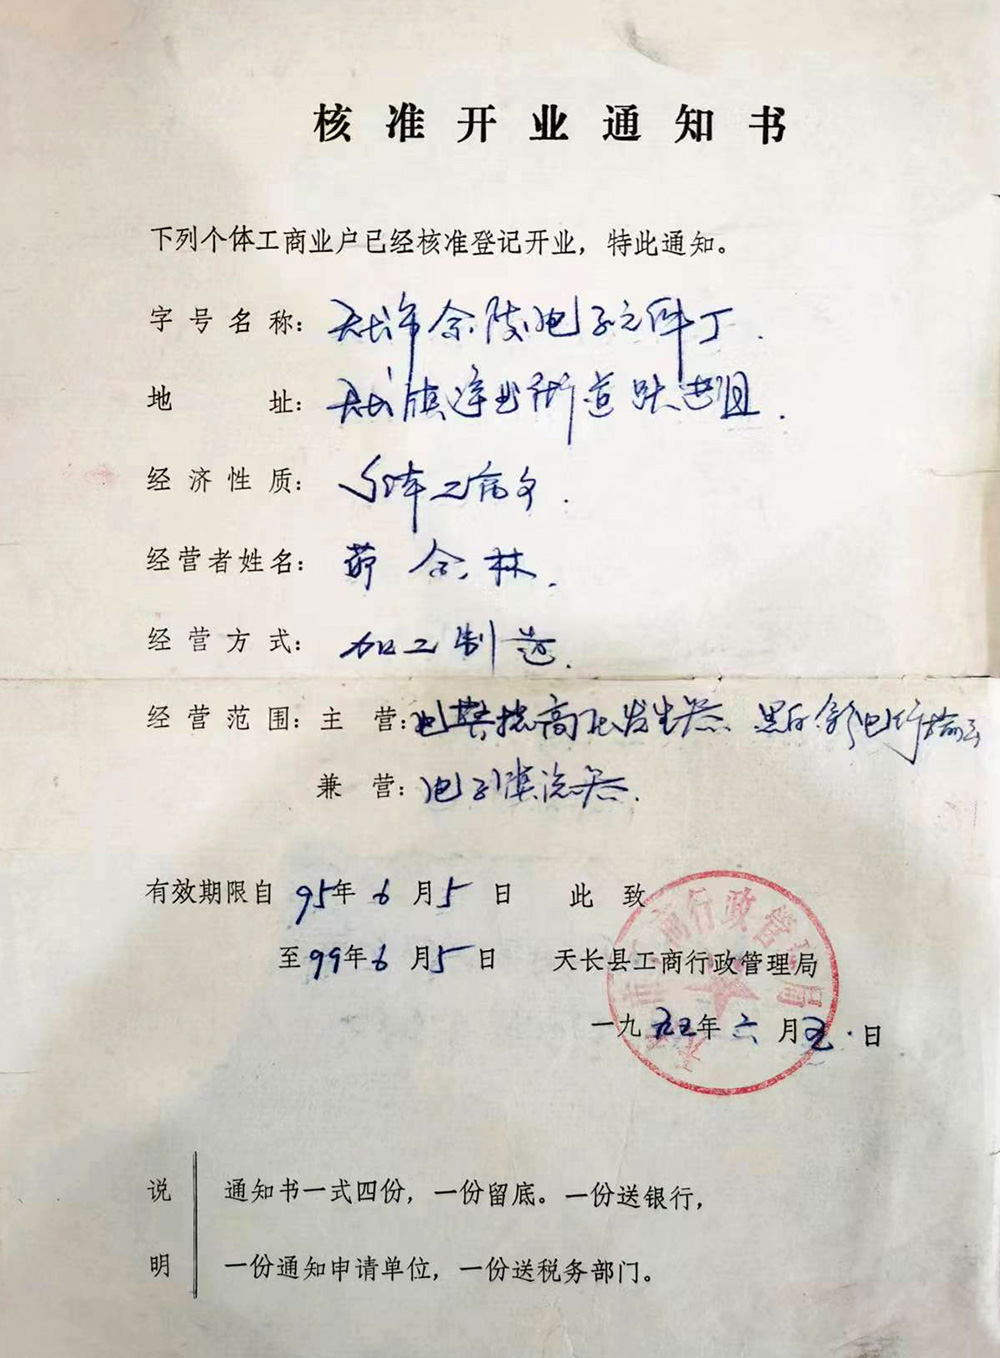 核准开业通知书
下列个体工商业户已经核准登记开业，特此通知。
字号名称：天长市余陵电子元件厂.
地址：天长镇连出街道跃进组.
经济性质：个体工商户.
经营者姓名：茆合林.
经营方式：加工制造.
经营范围：主营：电警棍高压发生器、黑白
兼营：电子镇流器.
有效期限自95年6月5日 此致
至99年6月5日 天长县工商行政管理局
一九九五年六月五日
说明
通知书一式四份，一份留底。一份送银行，
一份通知申请单位，一份送税务部门。